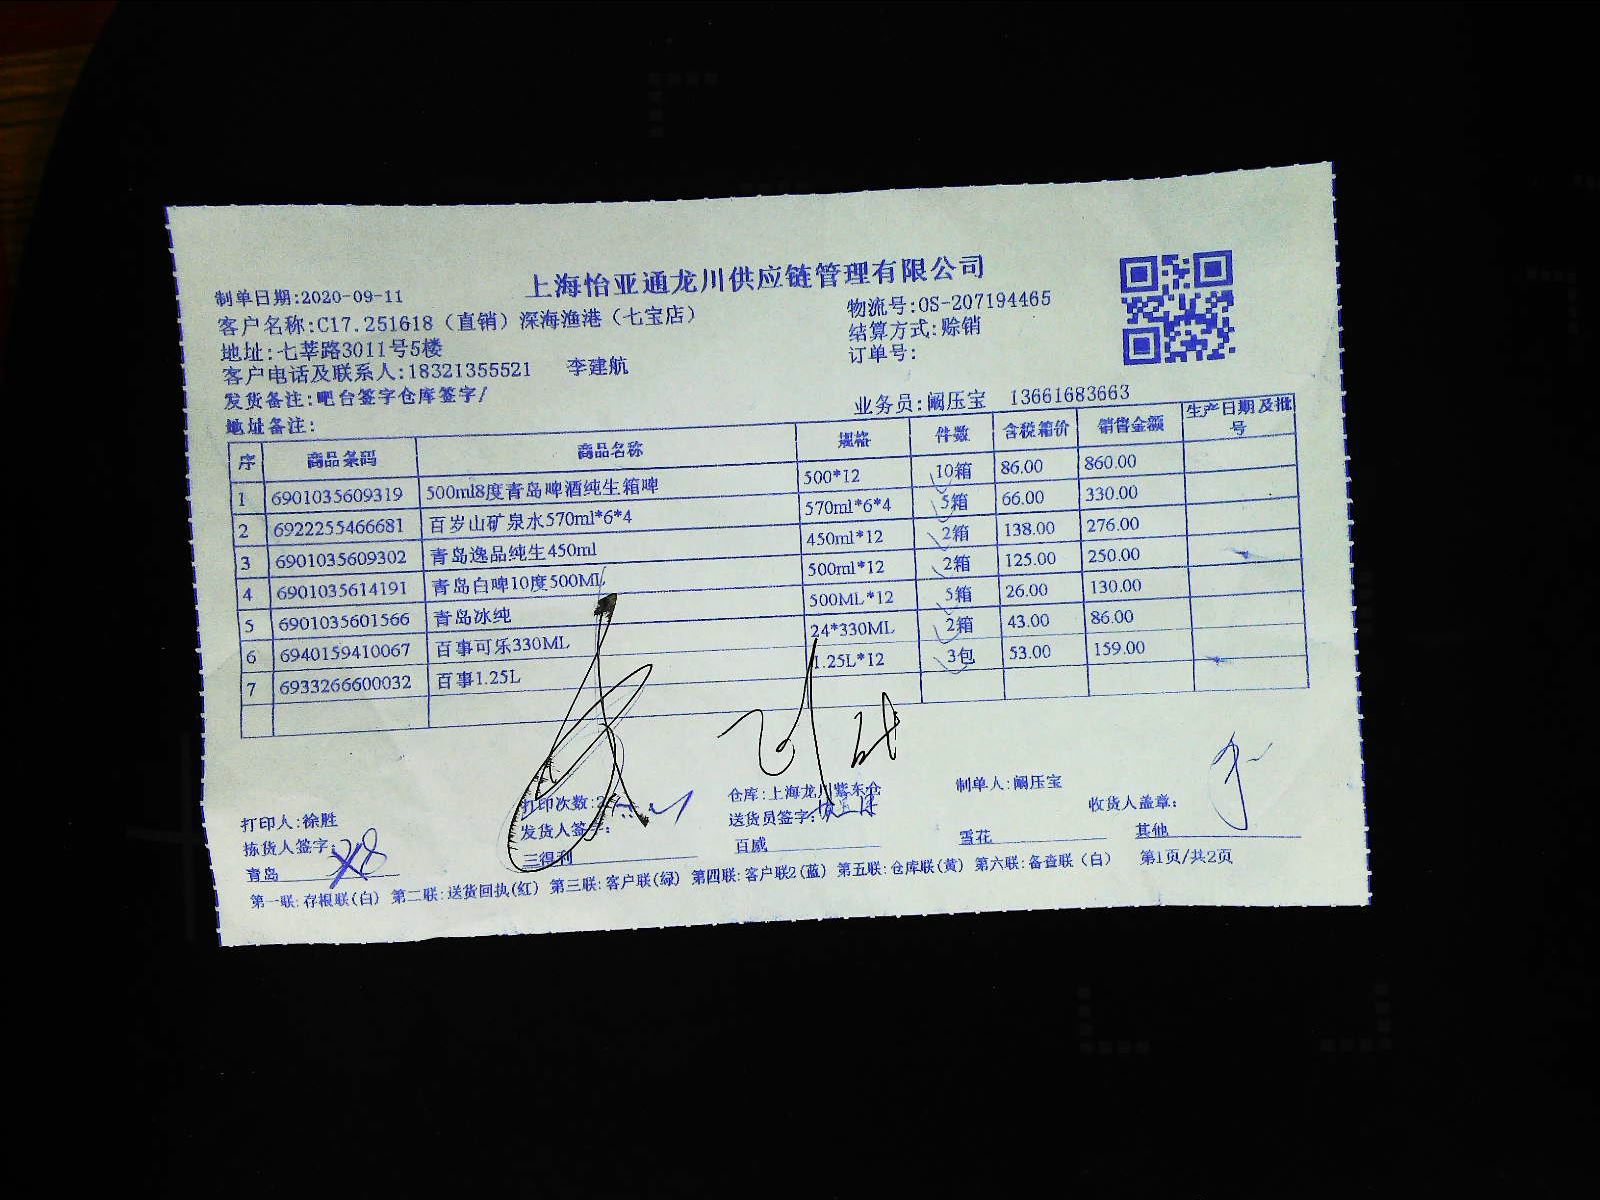 上海怡亚通龙川供应链管理有限公司
制单日期:2020-09-11
客户名称:C17.251618（直销）深海渔港（七宝店） 物流号:OS-207194465
地址:七莘路3011号5楼 结算方式:赊销
客户电话及联系人:18321355521 李建航 订单号:
发货备注:吧台签字仓库签字/
地址备注: 业务员:阚压宝 13661683663
序 商品条码 商品名称 规格 件数 含税箱价 销售金额 生产日期及批号
1 6901035609319 500ml8度青岛啤酒纯生箱啤 500*12 10箱 86.00 860.00
2 6922255466681 百岁山矿泉水570ml*6*4 570ml*6*4 5箱 66.00 330.00
3 6901035609302 青岛逸品纯生450ml 450ml*12 2箱 138.00 276.00
4 6901035614191 青岛白啤10度500ML 500ml*12 2箱 125.00 250.00
5 6901035601566 青岛冰纯 500ML*12 5箱 26.00 130.00
6 6940159410067 百事可乐330ML 24*330ML 2箱 43.00 86.00
7 6933266600032 百事1.25L 1.25L*12 3包 53.00 159.00
打印人:徐胜 打印次数:2 仓库:上海龙川紫东仓 制单人:阚压宝
拣货人签字: 发货人签字: 送货员签字: 收货人盖章:
青岛 三得利 百威 雪花 其他
第一联:存根联(白) 第二联:送货回执(红) 第三联:客户联(绿) 第四联:客户联2(蓝) 第五联:仓库联(黄) 第六联:备查联(白) 第1页/共2页